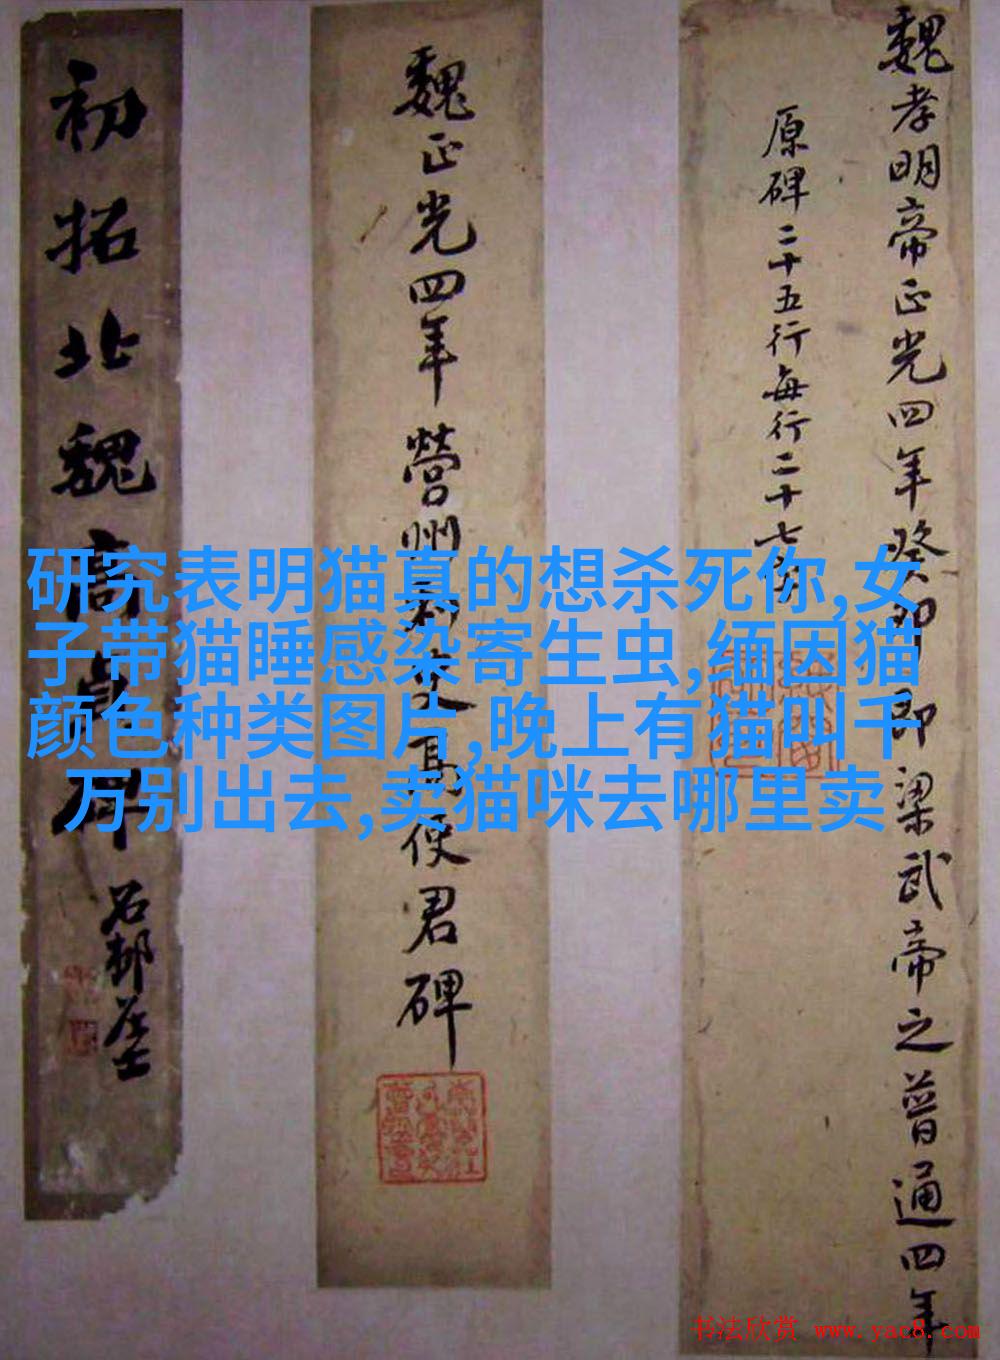 魏孝明帝正光四年癸卯即梁武帝之普通四年
原碑二十五行每行二十七字
魏正光四年營州刺史高使君碑
初拓北魏高貞碑
研究表明猫真的想杀死你,女
子带猫睡感染寄生虫,缅因猫
颜色种类图片,晚上有猫叫千
万别出去,卖猫咪去哪里卖
书法欣赏 www.yac8.com